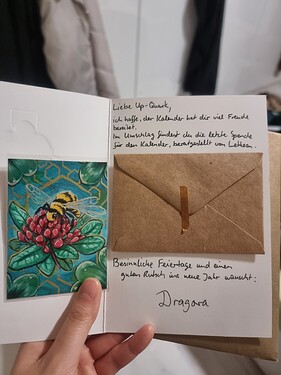 Liebe Up-Quark,
ich hoffe, der Kalender hat dir viel Freude
bereitet.
Im Umschlag findest du die letzte Spende
für den Kalender, bereitgestellt von Lethea.
Besinnliche Feiertage und einen
guten Rutsch ins neue Jahr wünscht:
Dragora